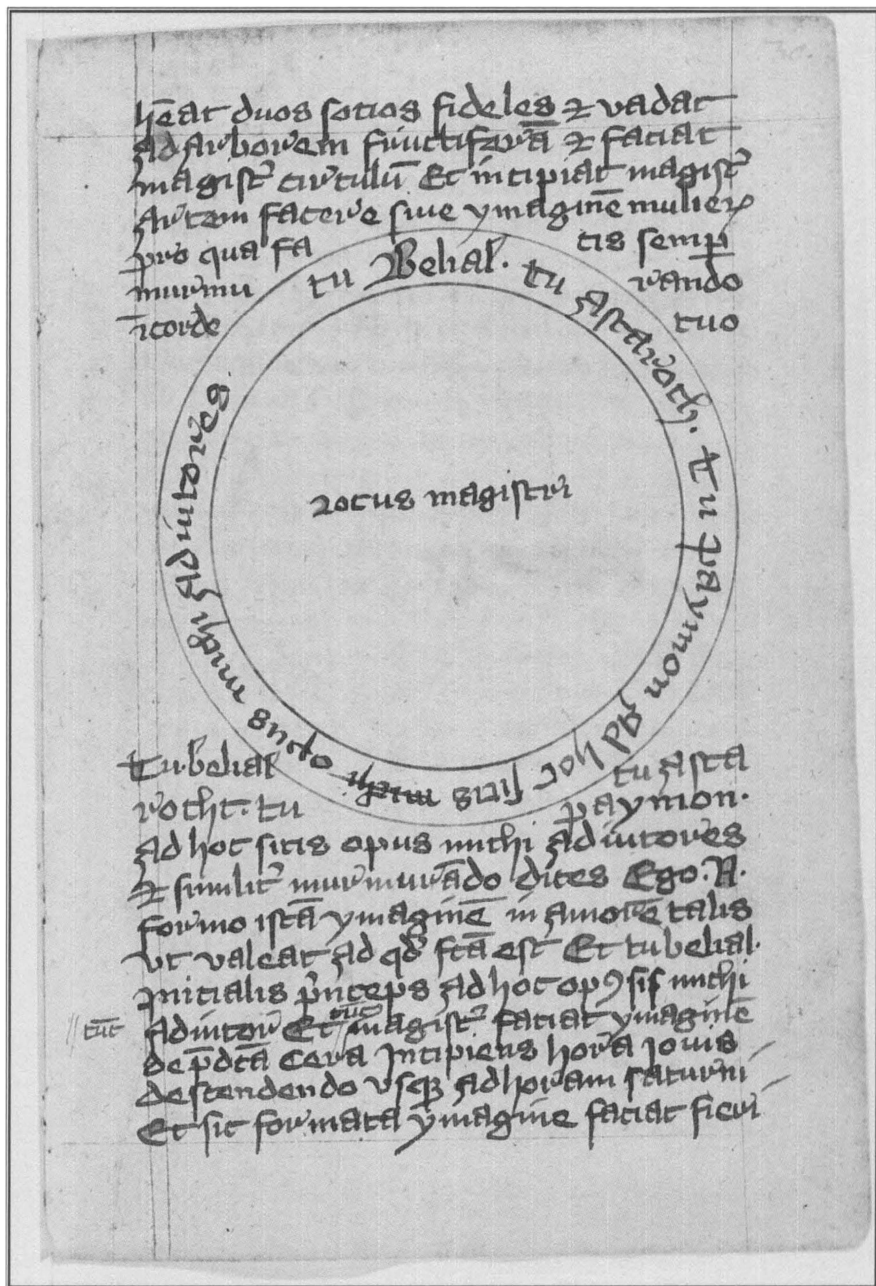 hēat duos sotios fideles et vadat
ad arborem fructiferā et faciat
magistr̄ circulū Et incipiat magistr̄
artem facere siue ymaginē mulier
pro qua fa cis semp
murmu rando
ī corde tuo
tu Belial. tu Astaroch. Tu paymon ad hoc sitis michi opus michi adiutores
Locus magistri
Tu belial tu asta
rocht. tu paymon.
Ad hoc sitis opus michi adiutores
et similit̄ murmurādo dices Ego. N.
formo istā ymaginē in amorē talis
vt valeat ad qd̄ fcā est Et tu belial.
Inicialis p̄nceps ad hoc opꝰ sis michi
adiutor Et tūc magistr̄ faciat ymaginē
tūc
de p̄dcā cera Incipiens hora Iouis
descendendo vsqꝫ ad horam saturni
Et sic formata ymagine faciat fieri